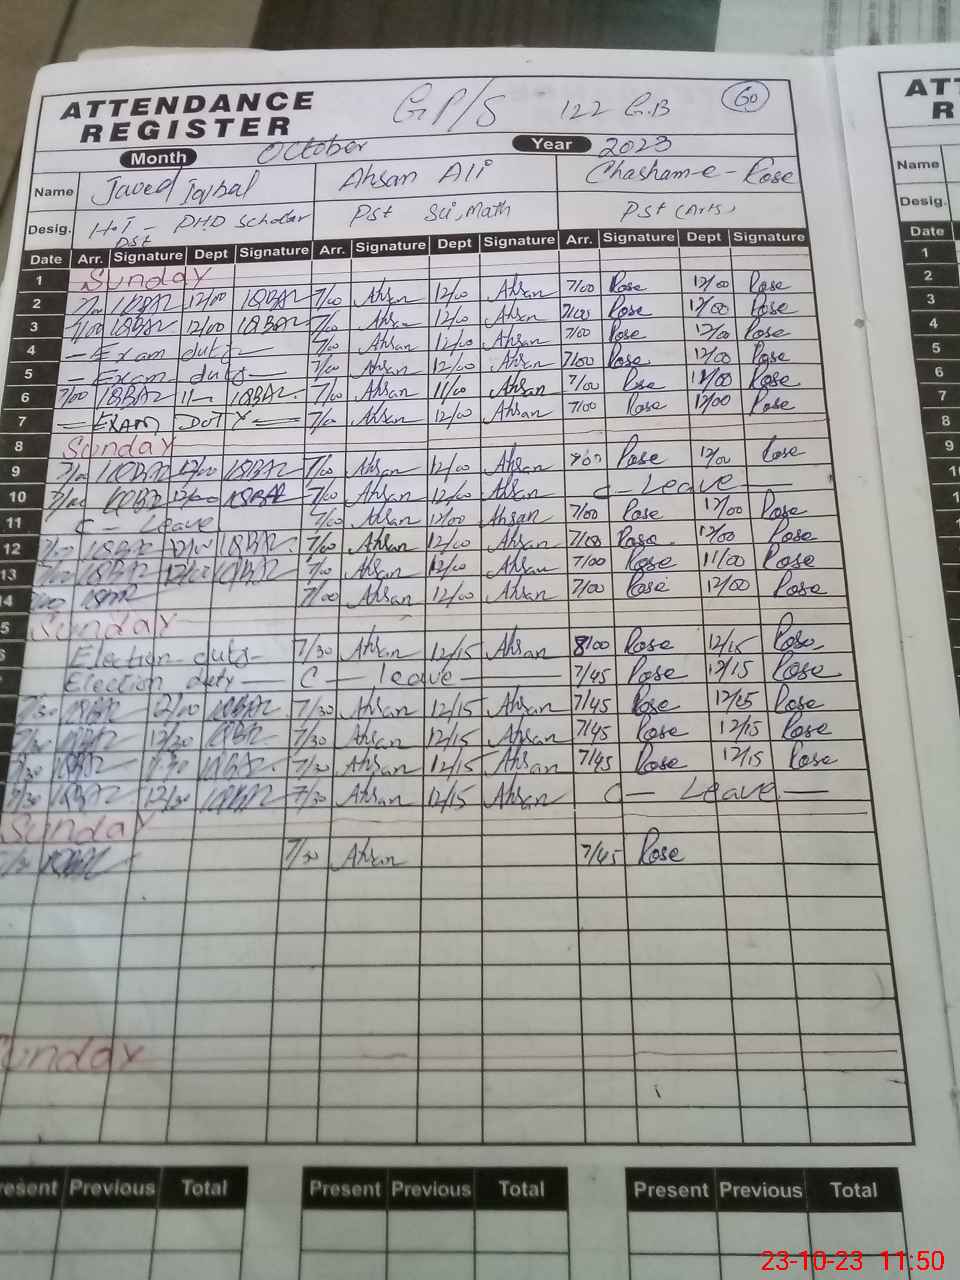 ATTENDANCE REGISTER G.P/S 122 G.B 60
Month October Year 2023
Name Javed Iqbal Ahsan Ali Chasham-e-Rose
Desig. H.T - PHD Scholar Pst Sci, Math Pst (Arts)
Pst
Date Arr. Signature Dept Signature Arr. Signature Dept Signature Arr. Signature Dept Signature
1 Sunday
2 7/00 IQBAL 12/00 IQBAL 7/00 Ahsan 12/00 Ahsan 7/00 Rose 12/00 Rose
3 7/00 IQBAL 12/00 IQBAL 7/00 Ahsan 12/00 Ahsan 7/00 Rose 12/00 Rose
4 - Exam duty - 7/00 Ahsan 12/00 Ahsan 7/00 Rose 12/00 Rose
5 - Exam duty - 7/00 Ahsan 12/00 Ahsan 7/00 Rose 12/00 Rose
6 7/00 IQBAL IQBAL 7/00 Ahsan 11/00 Ahsan 7/00 Rose Rose
7 - EXAM DUTY - 7/00 Ahsan 12/00 Ahsan 7/00 Rose 12/00 Rose
8 Sunday
9 7/00 IQBAL 12/00 IQBAL 7/00 Ahsan 12/00 Ahsan 7/00 Rose 12/00 Rose
10 7/00 IQBAL 12/00 IQBAL 7/00 Ahsan 12/00 Ahsan C - Leave -
11 C - Leave 7/00 Ahsan 12/00 Ahsan 7/00 Rose 12/00 Rose
12 7/00 IQBAL 12/00 IQBAL 7/00 Ahsan 12/00 Ahsan 7/00 Rose 12/00 Rose
13 7/00 IQBAL 12/00 IQBAL 7/00 Ahsan 12/00 Ahsan 7/00 Rose 11/00 Rose
14 7/00 IQBAL 7/00 Ahsan 12/00 Ahsan 7/00 Rose 12/00 Rose
5 Sunday
Election duty - 7/30 Ahsan 12/15 Ahsan 8/00 Rose 12/15 Rose
Election duty - C - leave - 7/45 Rose 12/15 Rose
7/30 IQBAL IQBAL 7/30 Ahsan 12/15 Ahsan 7/45 Rose 12/15 Rose
7/30 IQBAL 12/30 IQBAL 7/30 Ahsan 12/15 Ahsan 7/45 Rose 12/15 Rose
7/30 IQBAL IQBAL 7/30 Ahsan 12/15 Ahsan 7/45 Rose 12/15 Rose
7/30 IQBAL 12/30 IQBAL 7/30 Ahsan 12/15 Ahsan C - Leave -
Sunday
IQBAL 7/30 Ahsan 7/45 Rose
Sunday
resent Previous Total Present Previous Total Present Previous Total
ATT
R
Name
Desig.
Date
1
2
3
4
5
6
7
8
9
23-10-23 11:50